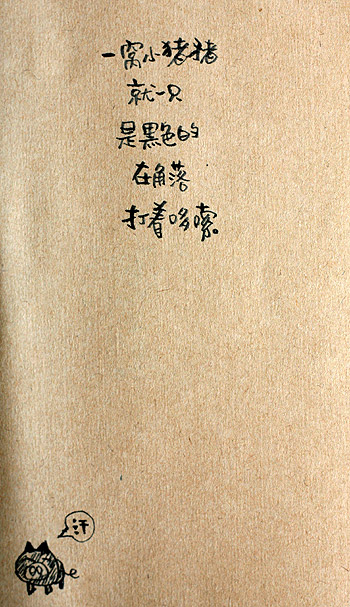 一窝小猪猪
就一只
是黑色的
在角落
打着哆嗦。
汗